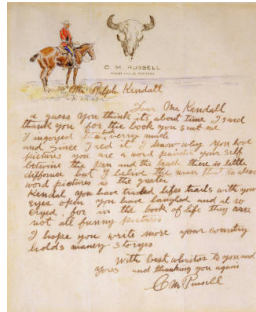 C. M. RUSSELL
GREAT FALLS, MONTANA
Mr Ralph Kendall
Dear Mr Kendall
I guess you think its about time I
thank you for the book you sent me
I injoyed it verry much
and since I red it I know why you love
pictures you are a word painter your self
Betwine the pen and the brush there is little
difference but I belive the man that
word pictures is the greater
Kendal you have traled lifes trails with your
eyes open you have laughed and
cryed for in the book of life they are
not all funny pictures
I hope you write more your country
holds maney storyes
With best whishes to you and
yores and thanking you again
C M Russell